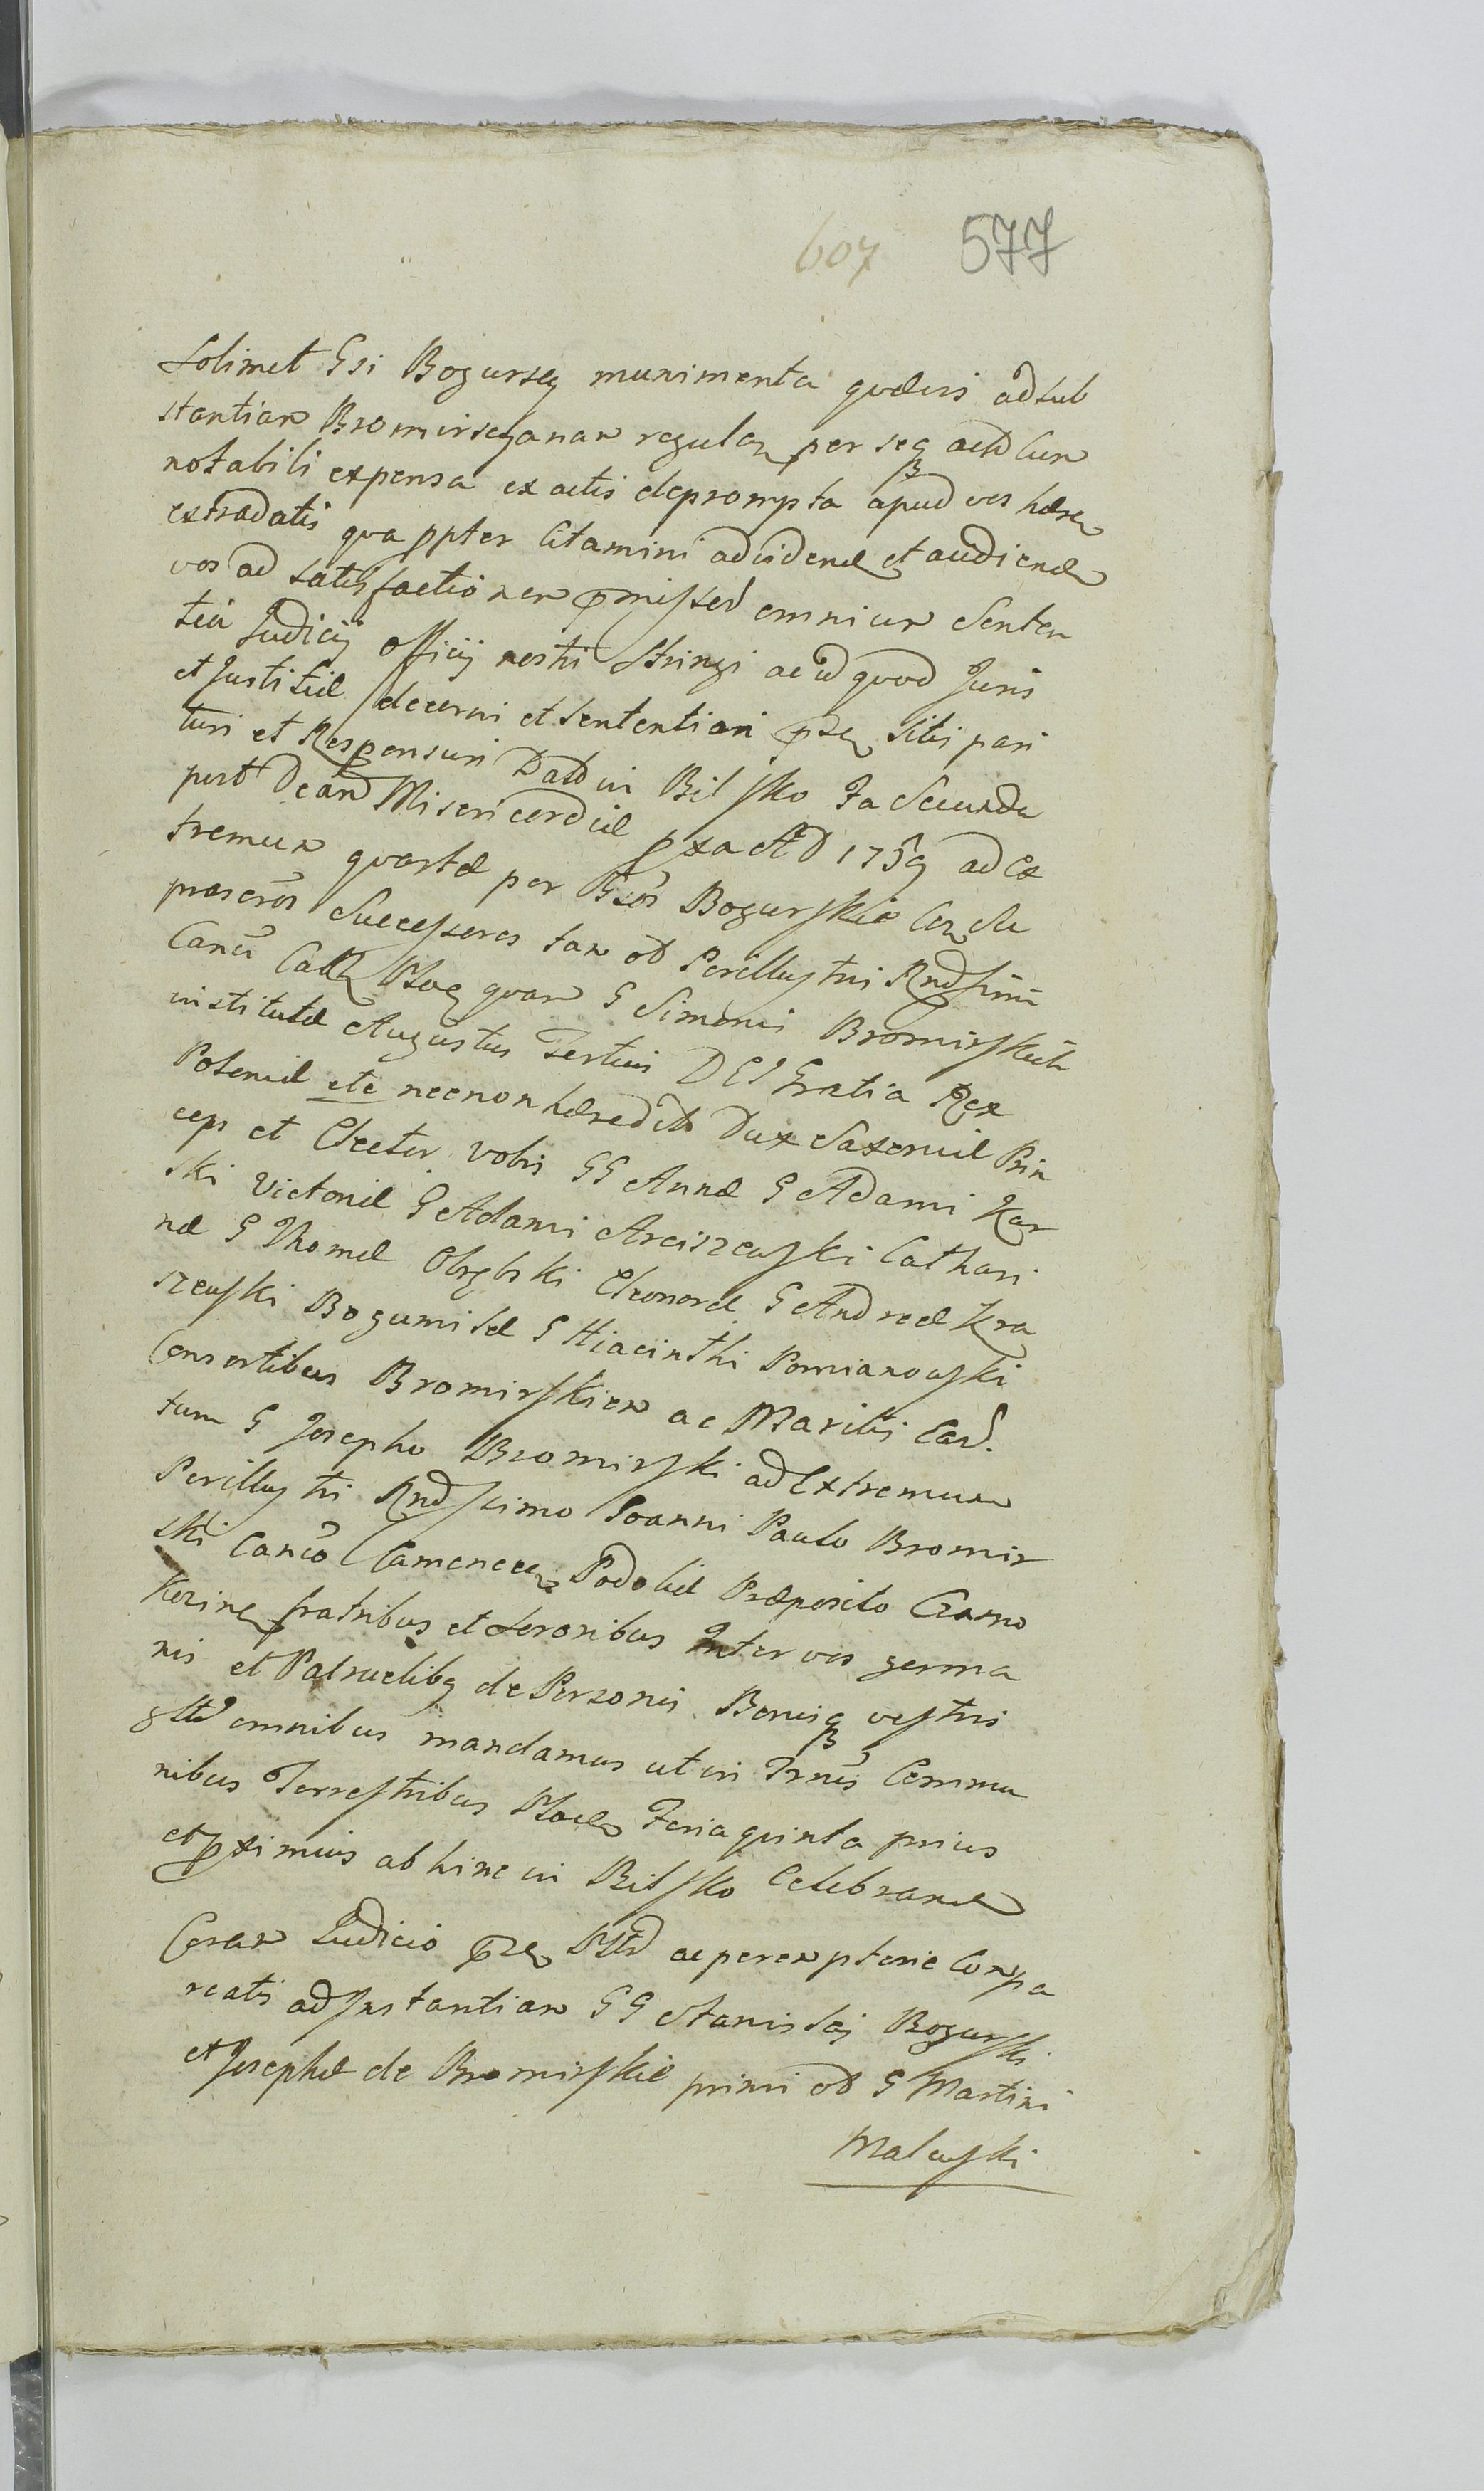 607 577
solimet Gsi Bogurscy munimenta quævis ad sub
stantiam Bromirscyanam regulan per seq actis cum
notabili expensa ex actis deprompta apud vos haben
extradatis qua ppter Citamini ad vidend et audiend
vos ad satisfactionem pmissor omnium Senten
tia Judicij Officij nostri Stringi ac id quod Juris
et Justitiæ decerni et Sententiari psen sitis pari
turi et Responsuri Datt in Bilsko Fa Secunda
post Dcam Misericordiæ pxa AD 1759 ad Ex
tremum quartæ per Gsos Bogurskie Con Su
prascros Successores tam ob Perillustri Rndssimi
Canci Cath Ploc quam G Simonis Bromirskich
institutæ Augustus Tertius DEI Gratia Rex
Poloniæ etc necnon hæredit Dux Saxoniæ Prin
ceps et Elector Vobis GG Annæ G Adami Kar
ski Victoriæ G Adami Arciszewski Cathari
næ G Thomæ Obrębski Eleonoræ G Andreæ Kra
szewski Bogumilæ G Hiacinthi Pomianowski
Consortibus Bromirskiem ac Maritis Eard.
tum G Josepho Bromirski ad Extremum
Perillustri Rndssimo Joanni Paulo Bromir
ski Canco Camenecen Podoliæ Præposito Czarno
kozinen fratribus et Sororibus Inter vos germa
nis et Patruelibq de Personis Bonisq vestris
gltr omnibus mandamus ut in Trnis Commu
nibus Terrestribus Plocen Feria quinta prius
et pximius ab hinc in Bilsko Celebrand
Coram Judicio psen Pltr ac peremptorie Compa
reatis ad Instantiam GG Stanislaj Bogurski
et Josephæ de Bromirskie primi ob G Martini
Malewski